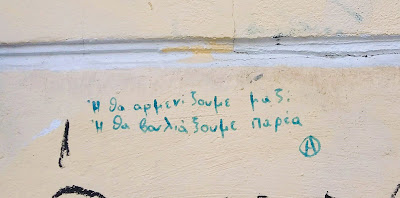 Ή θα αρμενίζουμε μαζί
Ή θα βουλιάξουμε παρέα
Ⓐ